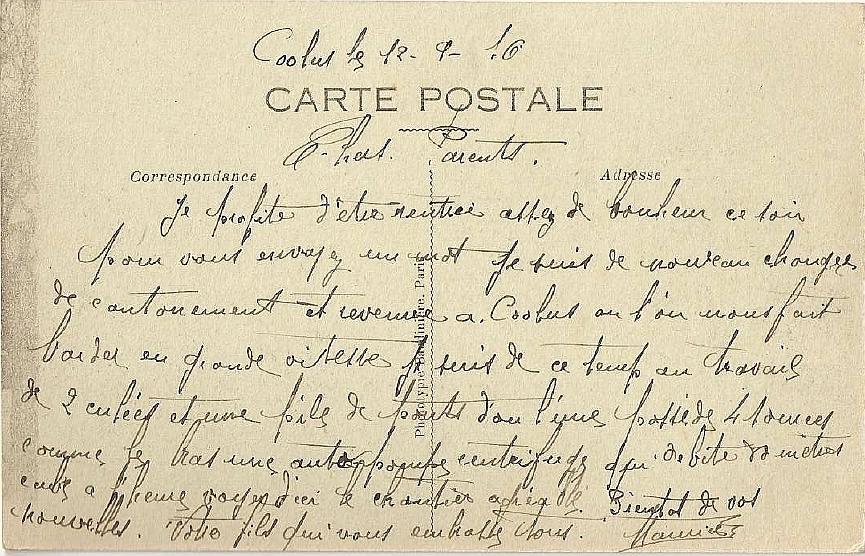 Coolus le 12-9-16
CARTE POSTALE
Chers Parents.
Correspondance
Adresse
Je profite d'être rentrée assez de bonheur ce soir
pour vous envoyez un mot Je suis de nouveau changer
de cantonement et revenue a Coolus ou l'on nous fait
barder en grande vitesse Je suis de ce temp au travail
de 2 culées et une pile de ponts d'ou l'une possède 4 tonnes
comme le bas une auto pompe centrifuge qui débite mètres
cube a l'heure voyez d'ici le chantier agréable Bientot de vos
nouvelles. Votre fils qui vous embrasse tous. Maurice
Phototypie Baudinière, Paris